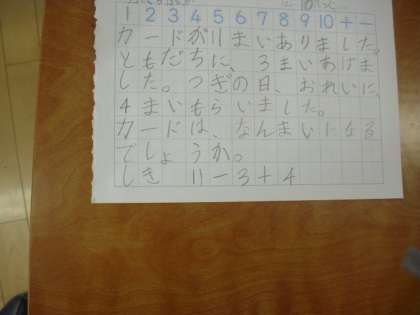 1 2 3 4 5 6 7 8 9 10 + −
カードが11まいありました。
ともだちに、3まいあげま
した。つぎの日、おれいに、
4まいもらいました。
カードは、なんまいになる
でしょうか。
しき 11−3+4